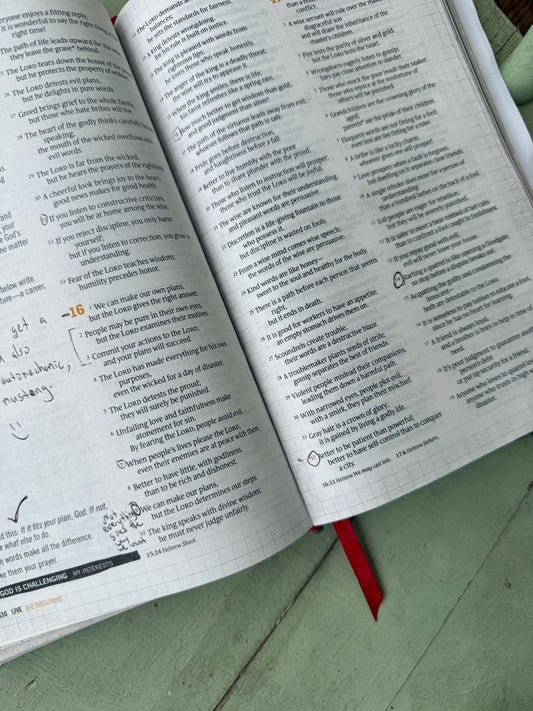 everyone enjoys a fitting reply
it is wonderful to say the right thing
right time!
The path of life leads upward for the
they leave the grave behind.
25 The LORD tears down the house of the
but he protects the property of
26 The LORD detests evil plans,
but he delights in pure words.
27 Greed brings grief to the whole family,
but those who hate bribes will
28 The heart of the godly thinks carefully before
speaking;
the mouth of the wicked overflows with
evil words.
29 The LORD is far from the wicked,
but he hears the prayers of the righteous.
30 A cheerful look brings joy to the heart;
good news makes for good health.
31 If you listen to constructive criticism,
you will be at home among the wise.
32 If you reject discipline, you only harm
yourself;
but if you listen to correction, you grow in
understanding.
33 Fear of the LORD teaches wisdom;
humility precedes honor.
16 1 We can make our own plans,
but the LORD gives the right answer.
2 People may be pure in their own eyes,
but the LORD examines their motives.
3 Commit your actions to the LORD,
and your plans will succeed.
4 The LORD has made everything for his own
purposes,
even the wicked for a day of disaster.
5 The LORD detests the proud;
they will surely be punished.
6 Unfailing love and faithfulness make
atonement for sin.
By fearing the LORD, people avoid evil.
7 When people's lives please the LORD,
even their enemies are at peace with them.
8 Better to have little, with godliness,
than to be rich and dishonest.
9 We can make our plans,
but the LORD determines our steps.
10 The king speaks with divine wisdom;
he must never judge unfairly.
15:24 Hebrew Sheol.
and
your
e God's
no matter
below write
ture—a career,
get a
also
mustang.
Not
everything
d this. If it fits your plan, God. If not,
e what else to do.
e words make all the difference.
ke them your prayer.
GOD IS CHALLENGING MY INTERESTS
LIVE old testament
11 The LORD demands
balances;
he sets the standards for fairness.
12 A king detests wrongdoing,
for his rule is built on justice.
13 The king is pleased with words from
righteous lips;
he loves those who speak honestly.
14 The anger of the king is a deadly threat;
the wise will try to appease it.
15 When the king smiles, there is life;
his favor refreshes like a spring rain.
16 How much better to get wisdom than gold,
and good judgment than silver!
17 The path of the virtuous leads away from evil;
whoever follows that path is safe.
18 Pride goes before destruction,
and haughtiness before a fall.
19 Better to live humbly with the poor
than to share plunder with the proud.
20 Those who listen to instruction will prosper;
those who trust the LORD will be joyful.
21 The wise are known for their understanding,
and pleasant words are persuasive.
22 Discretion is a life-giving fountain to those
who possess it,
but discipline is wasted on fools.
23 From a wise mind comes wise speech;
the words of the wise are persuasive.
24 Kind words are like honey—
sweet to the soul and healthy for the body.
25 There is a path before each person that seems
right,
but it ends in death.
26 It is good for workers to have an appetite;
an empty stomach drives them on.
27 Scoundrels create trouble;
their words are a destructive blaze.
28 A troublemaker plants seeds of strife;
gossip separates the best of friends.
29 Violent people mislead their companions,
leading them down a harmful path.
30 With narrowed eyes, people plot evil;
with a smirk, they plan their mischief.
31 Gray hair is a crown of glory;
it is gained by living a godly life.
32 Better to be patient than powerful;
better to have self-control than to conquer
a city.
16:33 Hebrew We may cast lots. 17:6 Hebrew fathers.
than a
2 A wise servant will rule over the master's
disgraceful son
and will share the inheritance of the
master's children.
3 Fire tests the purity of silver and gold,
but the LORD tests the heart.
4 Wrongdoers eagerly listen to gossip;
liars pay close attention to slander.
5 Those who mock the poor insult their Maker;
those who rejoice at the misfortune of
others will be punished.
6 Grandchildren are the crowning glory of the
aged;
parents* are the pride of their children.
7 Eloquent words are not fitting for a fool;
even less are lies fitting for a ruler.
8 A bribe is like a lucky charm;
whoever gives one will prosper!
9 Love prospers when a fault is forgiven,
but dwelling on it separates close friends.
10 A single rebuke does more for a person of
understanding
than a hundred lashes on the back of a fool.
11 Evil people are eager for rebellion,
but they will be severely punished.
12 It is safer to meet a bear robbed of her cubs
than to confront a fool caught in foolishness.
13 If you repay good with evil,
evil will never leave your house.
14 Starting a quarrel is like opening a floodgate,
so stop before a dispute breaks out.
15 Acquitting the guilty and condemning the
innocent—
both are detestable to the LORD.
16 It is senseless to pay tuition to educate a fool,
since he has no heart for learning.
17 A friend is always loyal,
and a brother is born to help in time of
need.
18 It's poor judgment to guarantee another
person's debt
or put up security for a friend.
19 Anyone who loves to quarrel loves
anyone who trusts in high walls
disaster.